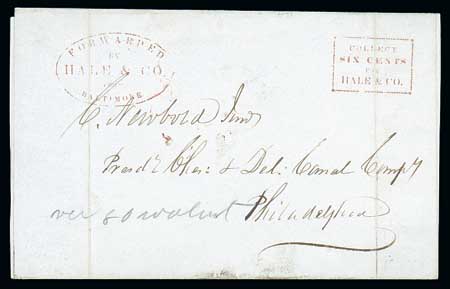 FORWARDED
BY
HALE & CO.
BALTIMORE
COLLECT
SIX CENTS
FOR
HALE & CO.
C. Newbold Junr
Presdt Ches: & Del: Canal Compy
Philadelphia